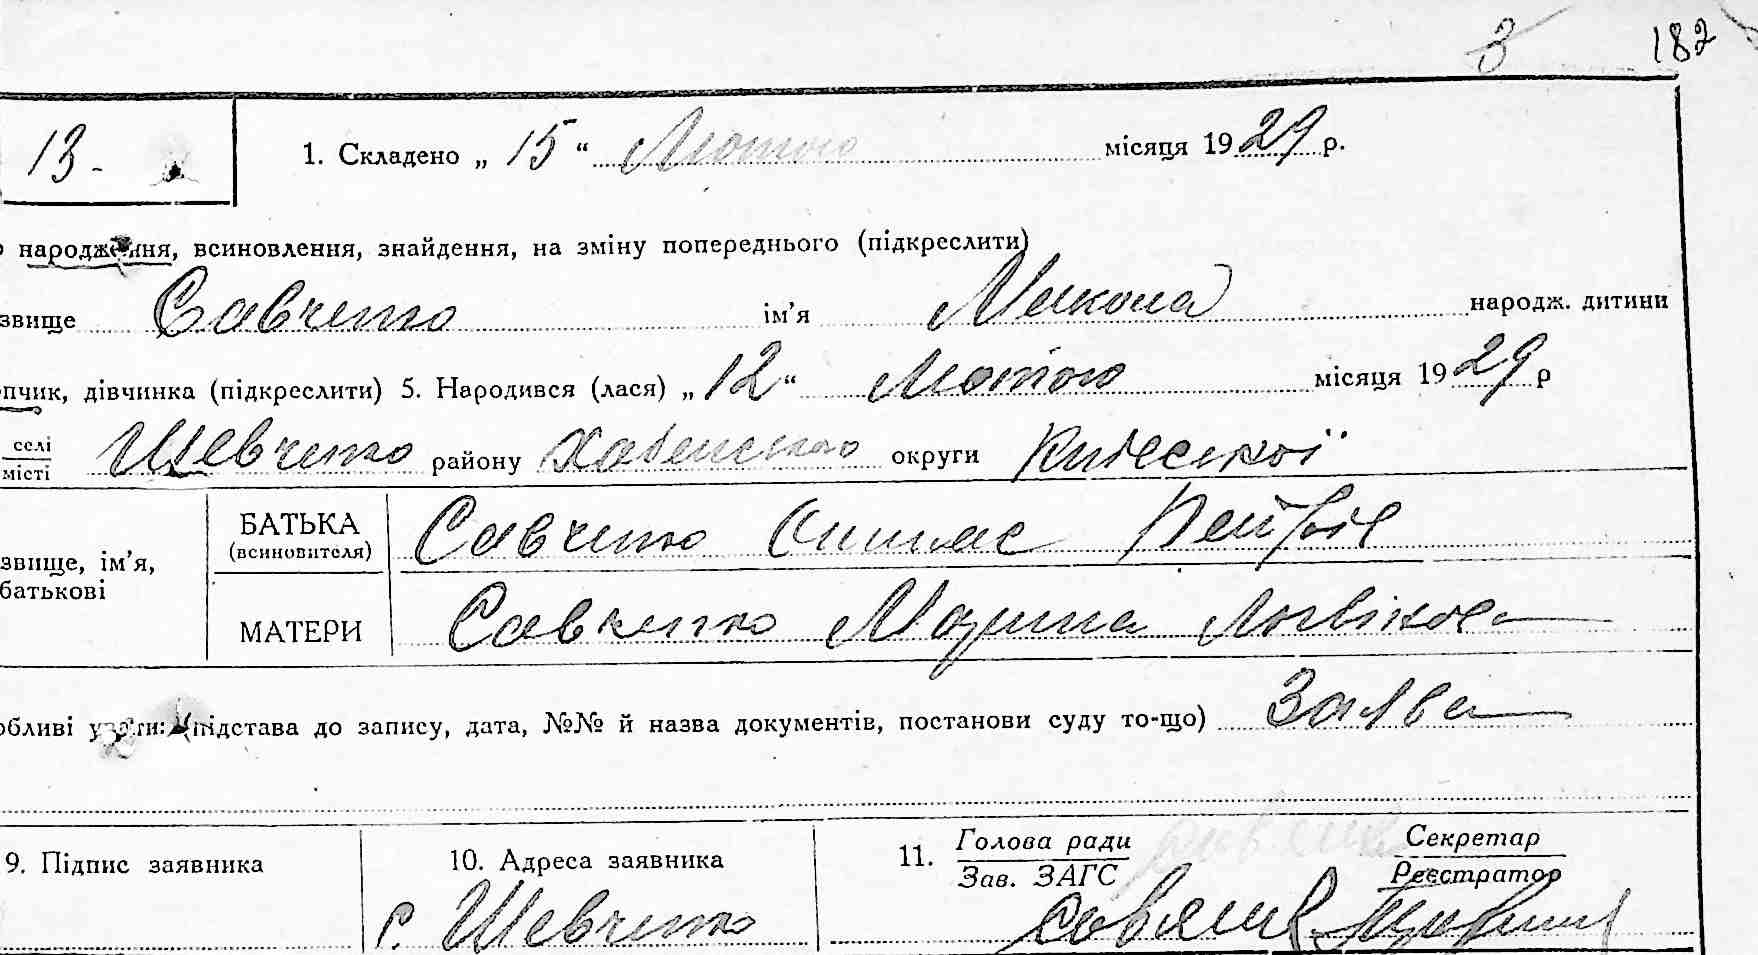 3 182
13- 1. Складено „ 15 “ Лютого місяця 1929 р.
о народження, всиновлення, знайдення, на зміну попереднього (підкреслити)
звище Савченко ім’я Микола народж. дитини
пчик, дівчинка (підкреслити) 5. Народився (лася) „ 12 “ Лютого місяця 1929 р
селі
місті Шевченко району Хабенського округи Київської
звище, ім’я,
батькові
БАТЬКА
(всиновителя)
Савченко Петров
МАТЕРИ Савченко Марина
обливі уваги: (підстава до запису, дата, №№ й назва документів, постанови суду то-що) Заява
9. Підпис заявника
10. Адреса заявника
с. Шевченко
11. Голова ради
Зав. ЗАГС
Секретар
Реєстратор